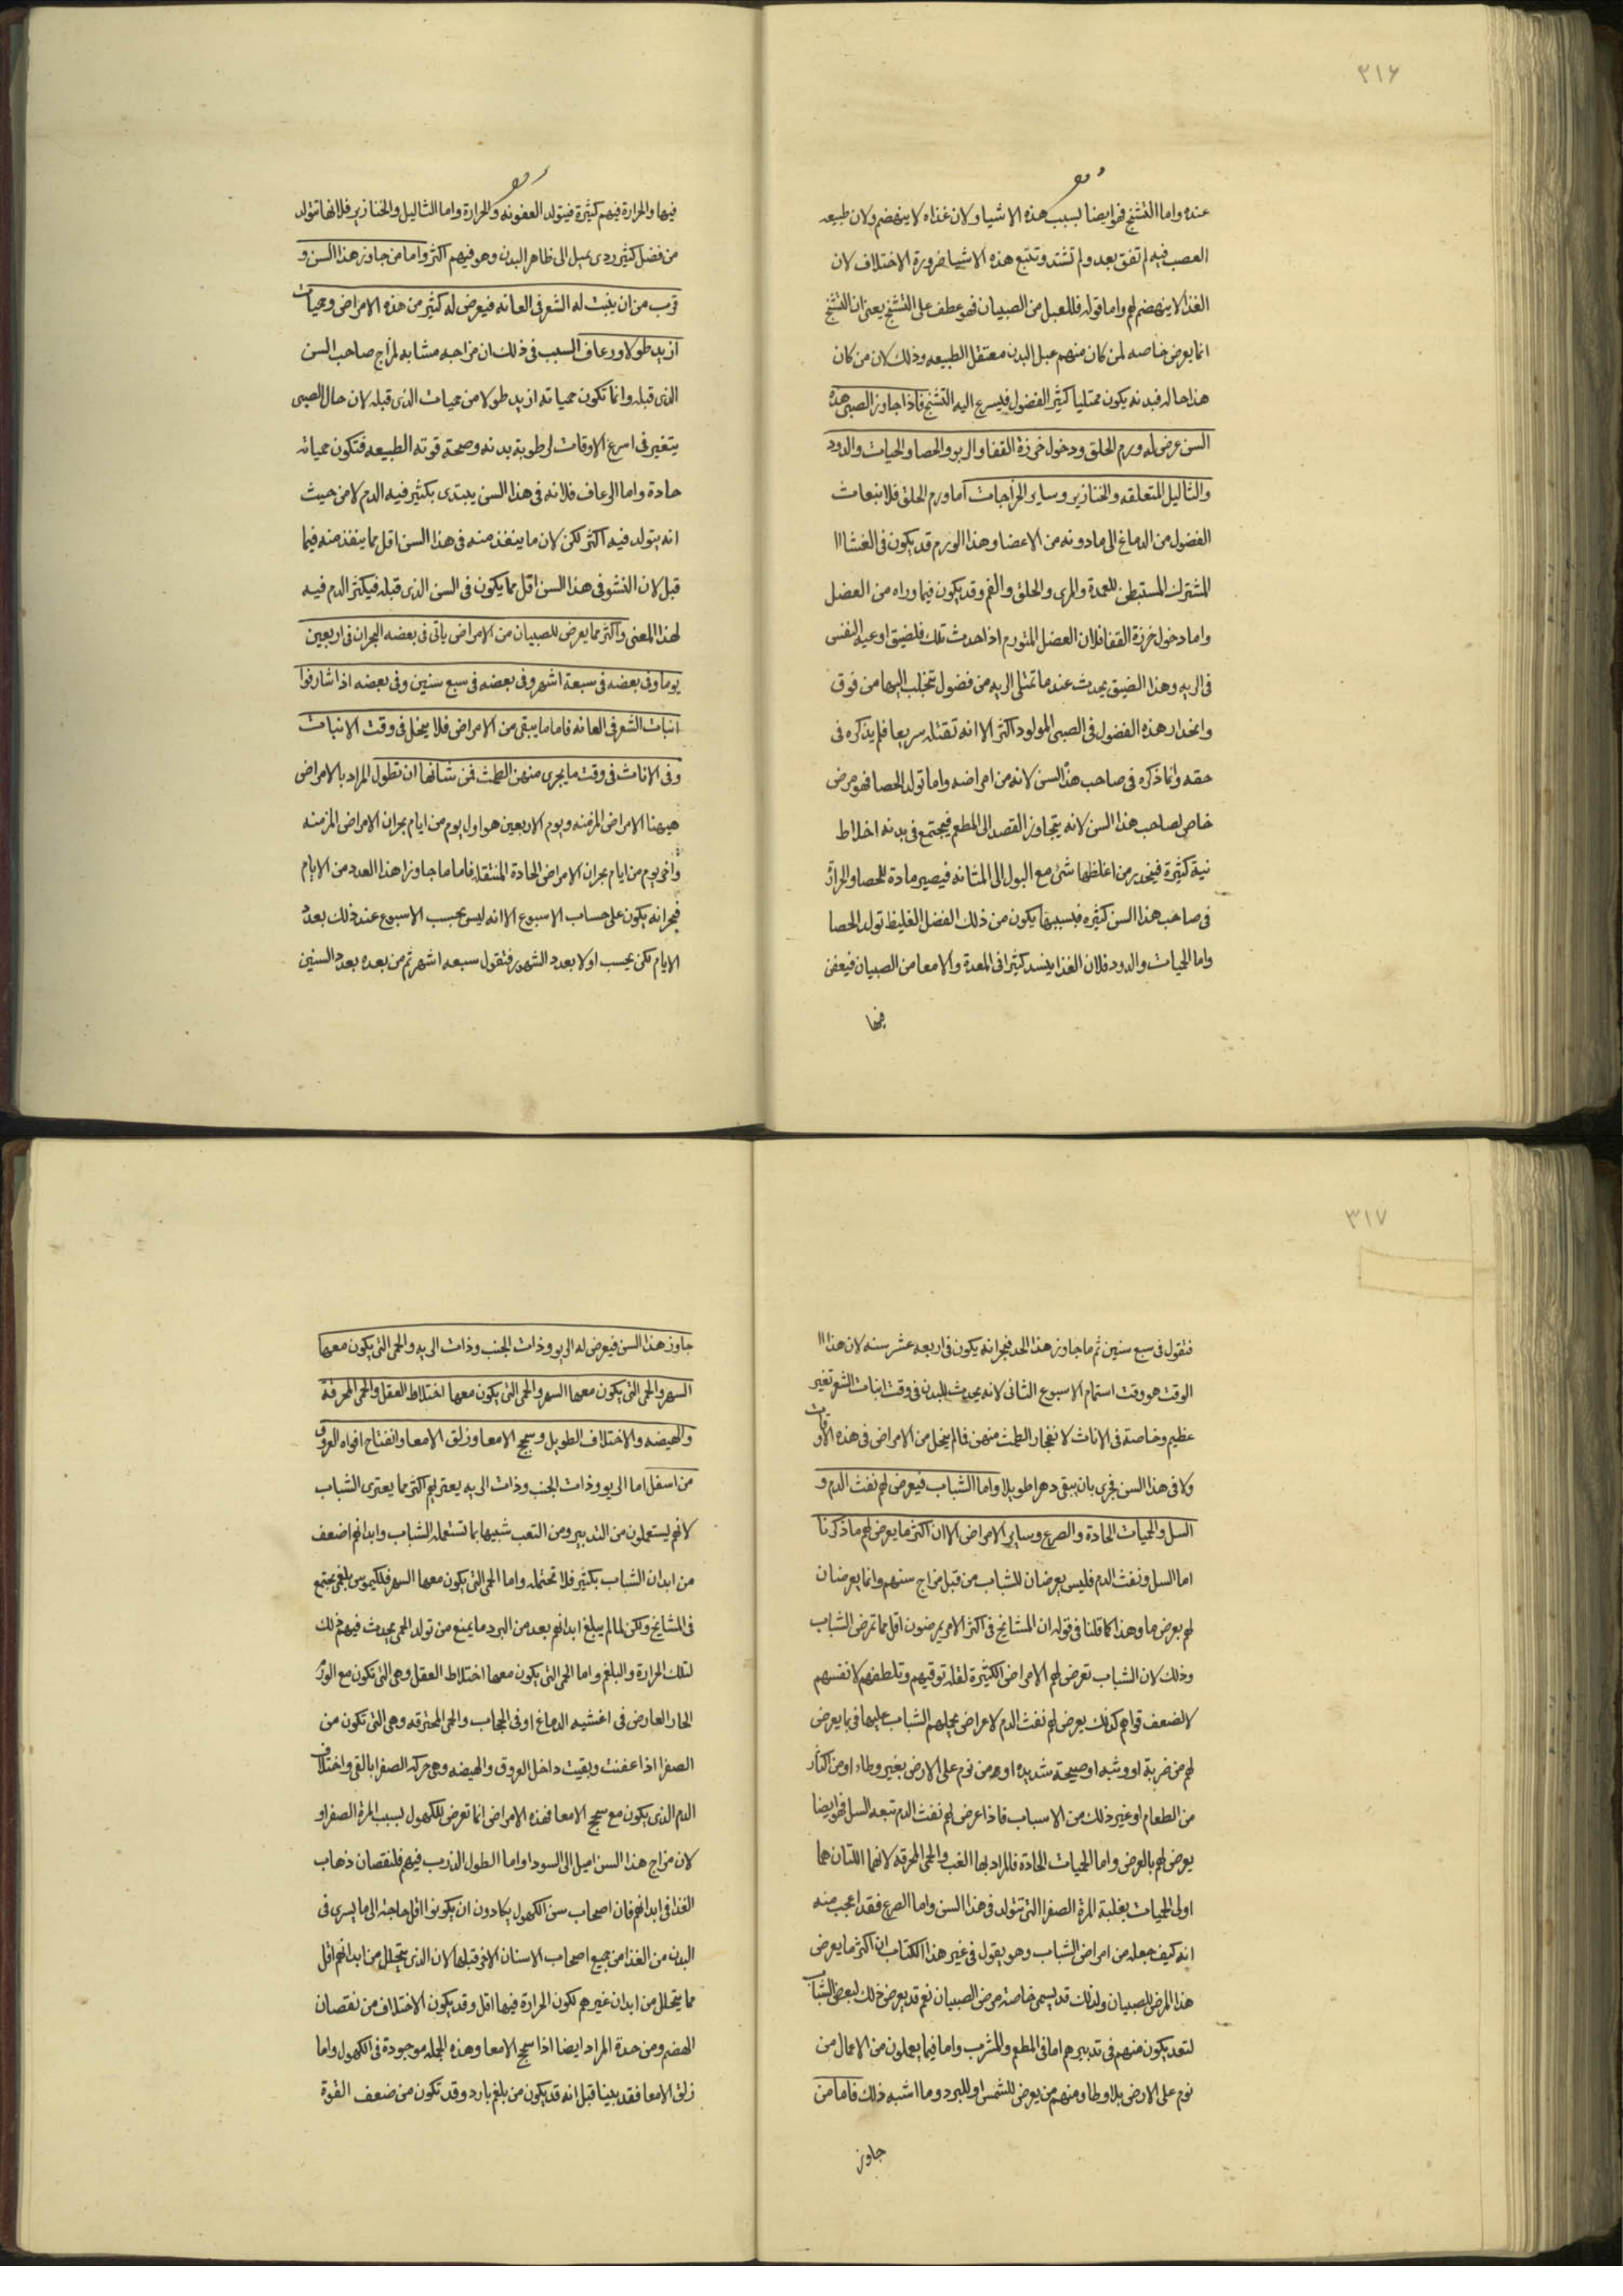 ٣١٦
عنده واما التشنج فهو ايضا بسبب هذه الاشيا ولان غذاه لا ينهضم ولان طبيعه
العصب فيهم لم تفق بعد ولم تشتد وتتبع هذه الاشيا ضرورة الاختلاف لان
الغذا لا ينهضم لهم واما قوله فللعبل من الصبيان فهو عطف على التشنج يعنى ان التشنج
انما يعرض خاصه لمن كان منهم عبل البدن معتقل الطبيعه وذلك لان من كان
هذا حاله فبدنه يكون ممتليا كثير الفضول فيسرع اليه التشنج فاذا جاوز الصبى هذه
السن عرض له ورم الحلق ودخول خرزة القفا والربو والحصا والحيات والدود
والثاليل المتعلقه والخنازير وساير الخراجات اما ورم الحلق فلانبعاث
الفضول من الدماغ الى ما دونه من الاعضا وهذا الورم قد يكون فى الغشا اا
المشترك المستبطن للمعدة والمرى والحلق والفم وقد يكون فيما وراه من العضل
واما دخول خرزة القفا فلان العضل المتورم اذا حدث تلك فلضيق اوعيه النفس
فى الريه وهذا الضيق يحدث عند ما تمتلى الريه من فضول تتحلب اليها من فوق
وانحدار هذه الفضول فى الصبى المولود اكثر الا انه تقتله سريعا فلم يذكره فى
حقه وانما ذكره فى صاحب هذا السن لانه من امراضه واما تولد الحصا فهو مرض
خاص لصاحب هذا السن لانه يتجاوز القصد الى المطعم فيجتمع فى بدنه اخلاط
نية كثيرة فينحدر من اغلظها شئ مع البول الى المثانه فيصير مادة للحصا والحرارة
فى صاحب هذا السن كثيره فبسببها يكون من ذلك الفضل الغليظ تولد الحصا
واما الحيات والدود فلان الغذا يفسد كثيرا فى المعدة والامعا من الصبيان فيعفن
فيها
فيها والحرارة فيهم كثيرة فيتولد العفونه والحرارة واما الثاليل والخنازير فلانها تتولد
من فضل كثير ردى يميل الى ظاهر البدن وهو فيهم اكثر واما من جاوز هذا السن و
قرب من ان ينبت له الشعر فى العانه فيعرض له كثير من هذه الامراض وحميات
ازيد طولا ورعاف السبب فى ذلك ان مزاجه مشابه لمزاج صاحب السن
الذى قبله وانما تكون حمياته ازيد طولا من حميات الذى قبله لان حال الصبى
يتغير فى اسرع الاوقات لرطوبة بدنه وصحة قوته الطبيعه فتكون حمياته
حادة واما الرعاف فلانه فى هذا السن يبتدى بكثير فيه الدم لا من حيث
انه يتولد فيه اكثر لكن لان ما ينفذ منه فى هذا السن اقل مما ينفذ منه فيما
قبل لان النشو فى هذا السن اقل مما يكون فى السن الذى قبله فيكثر الدم فيه
لهذا المعنى واكثر مما يعرض للصبيان من الامراض ياتى فى بعضه البحران فى اربعين
يوما وفى بعضه فى سبعة اشهر وفى بعضه فى سبع سنين وفى بعضه اذا شارفوا
انبات الشعر فى العانه فاما ما يبقى من الامراض فلا يخل فى وقت الانبات
وفى الاناث فى وقت ما يجرى منهن الطمث فمن شانها ان تطول المراد بالامراض
هيهنا الامراض المزمنه ويوم الاربعين هو اول يوم من ايام بحران الامراض المزمنه
واخر يوم من ايام بحران الامراض الحادة المنتقله فاما ما جاوز هذا العدد من الايام
فبحرانه يكون على حساب الاسبوع الا انه ليس بحسب الاسبوع عند ذلك بعدد
الايام لكن يحسب اولا بعدد الشهور فنقول سبعه اشهر ثم من بعده بعدد السنين
٣١٧
فنقول فى سبع سنين ثم ما جاوز هذا الحد فبحرانه يكون فى اربعه عشر سنه لان هذا اا
الوقت هو وقت استمام الاسبوع الثانى لانه يحدث للبدن فى وقت انبات الشعر تغير
عظيم وخاصة فى الاناث لانفجار الطمث منهن فما لم ينحل من الامراض فى هذه الاوقات
ولا فى هذا السن فحرى بان يبقى دهرا طويلا واما الشباب فيعرض لهم نفث الدم و
السل والحميات الحادة والصرع وساير الامراض الا ان اكثر ما يعرض لهم ما ذكرنا
اما السل ونفث الدم فليس يعرضان للشباب من قبل مزاج سنهم وانما يعرضان
لهم بعرض ما وهذا كما قلنا فى قوله ان المشائخ فى اكثر الامر يمرضون اقل مما تمرض الشباب
وذلك لان الشباب تعرض لهم الامراض الكثيرة لقله توقيهم وتلطفهم لانفسهم
لا لضعف قواهم كذلك يعرض لهم نفث الدم لاعراض يحملهم الشباب عليها فى ما يعرض
لهم من ضربة او وثبه او صيحة شديده او من نوم على الارض بغير وطاء او من اكثار
من الطعام او غير ذلك من الاسباب فاذا عرض لهم نفث الدم تبعه السل فهو ايضا
يعرض لهم بالعرض واما الحميات الحادة فالمراد بها الغب والحمى المحرقه لانهما اللتان هما
اولى الحميات بغلبة المرة الصفرا التى تتولد فى هذا السن واما الصرع فقد اعجب منه
انه كيف جعله من امراض الشباب وهو يقول فى غير هذا الكتاب ان اكثر ما يعرض
هذا المرض للصبيان ولذلك قد يسمى خاصة مرض الصبيان نعم قد يعرض ذلك لبعض الشباب
لتعد يكون منهم فى تدبيرهم اما فى المطعم والمشرب واما فيما يعملون من الاعمال من
نوم على الارض بلا وطا ومنهم من يعرض للشمس او للبرد وما اشبه ذلك فاما من
جاوز
جاوز هذا السن فيعرض له الربو وذات الجنب وذات الريه والحمى التى يكون معها
السهر والحمى التى يكون معها السهر والحمى التى يكون معها اختلاط العقل والحمى المحرقة
والهيضه والاختلاف الطويل وسحج الامعا وزلق الامعا وانفتاح افواه العروق
من اسفل اما الربو وذات الجنب وذات الريه يعتريهم اكثر مما يعترى الشباب
لانهم يستعملون من التدبير ومن التعب شبيها بما تستعمله الشباب وابدانهم اضعف
من ابدان الشباب بكثير فلا تحتمله واما الحمى التى يكون معها السهر فلكيموس بلغمى يجتمع
فى المشايخ ولكن لما لم يبلغ ابدانهم بعد من البرد ما يمنع من تولد الحمى يحدث فيهم ذلك
لتلك الحرارة والبلغم واما الحمى التى يكون معها اختلاط العقل وهى التى تكون مع الورم
الحار العارض فى اغشيه الدماغ او فى الحجاب والحمى المحترقه وهى التى تكون من
الصفرا اذا عفنت وبقيت داخل العروق والهيضه وهى حركه الصفرا بالقى واختلاف
الدم الذى يكون مع سحج الامعا فهذه الامراض انما تعرض للكهول بسبب المرة الصفرا و
لان مزاج هذا السن اميل الى السودا واما الطول الذرب فيهم فلنقصان ذهاب
الغذا فى ابدانهم فان اصحاب سن الكهول يكادون ان يكونوا اقل حاجة الى ما يسرى فى
البدن من الغذا من جميع اصحاب الاسنان الاخر قبلها لان الذى يتحلل من ابدانهم اقل
مما يتحلل من ابدان غيرهم لكون الحرارة فيها اقل وقد يكون الاختلاف من نقصان
الهضم ومن حدة المرار ايضا اذا سحج الامعا وهذه الجمله موجودة فى الكهول واما
زلق الامعا فقد بينا قبل انه قد يكون من بلغم بارد وقد تكون من ضعف القوة